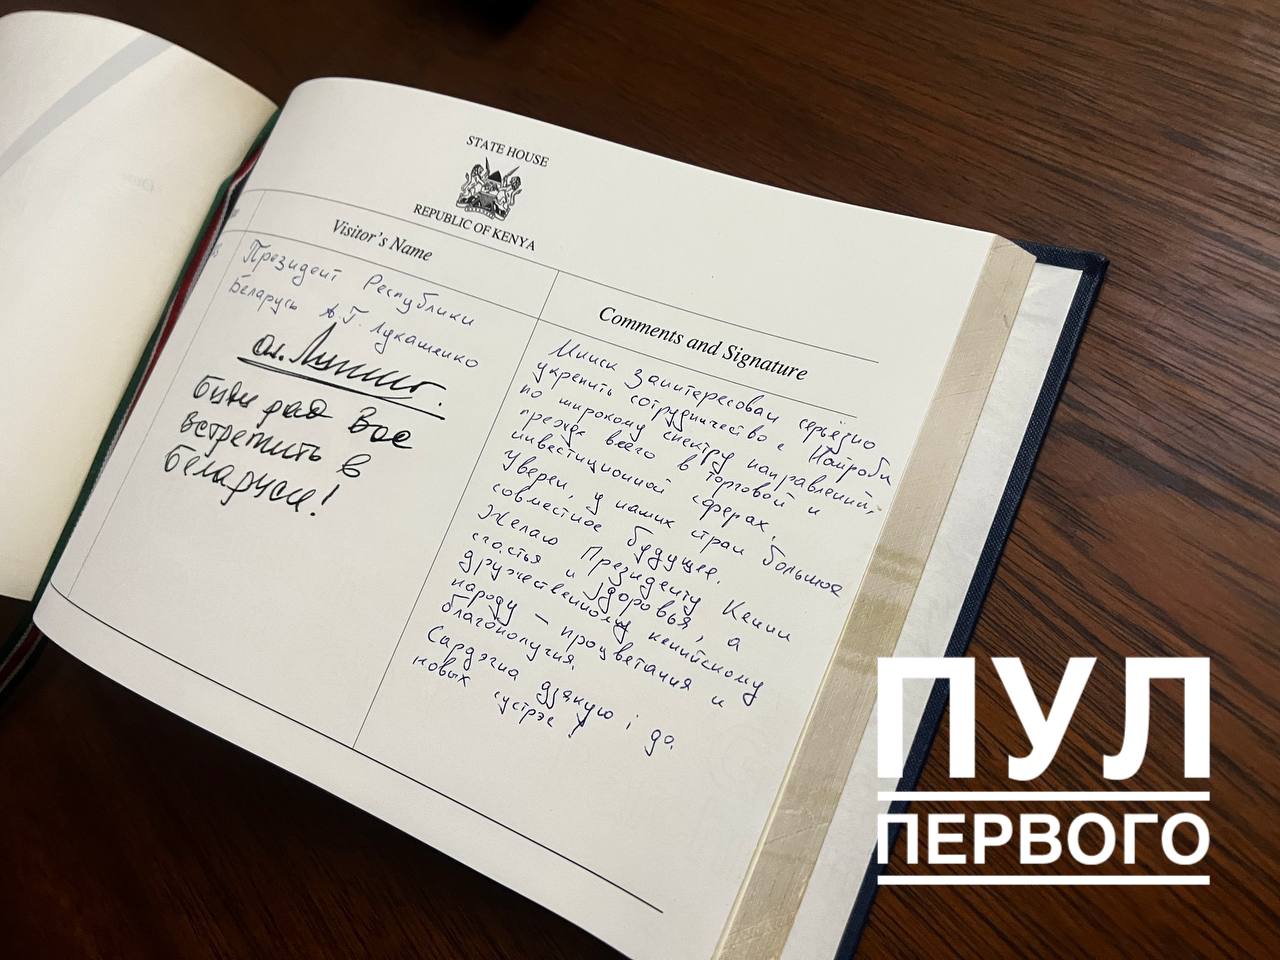 STATE HOUSE
REPUBLIC OF KENYA
Visitor's Name
Президент Республики
Беларусь А.Г. Лукашенко
буду рад Вас
встретить в
Беларуси!
Comments and Signature
Минск заинтересован серьёзно
укрепить сотрудничество с Найроби
по широкому спектру направлений,
прежде всего в торговой и
инвестиционной сферах.
Уверен, у наших стран большое
совместное будущее.
Желаю Президенту Кении
счастья и здоровья, а
дружественному кенийскому
народу – процветания и
благополучия.
Сардэчна дзякую і да
новых сустрэч!
ПУЛ
ПЕРВОГО